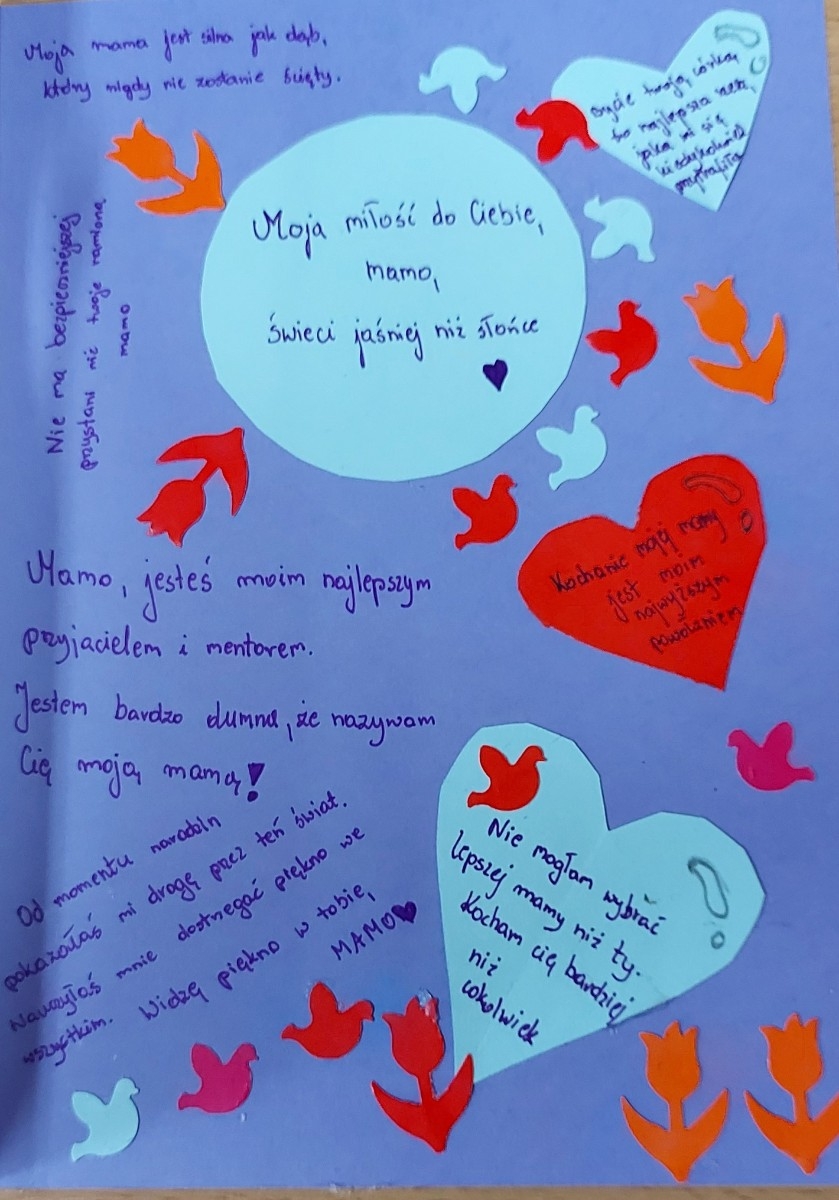 Moja mama jest silna jak dąb,
który nigdy nie zostanie ścięty.
Bycie twoją córką,
to najlepsza rzecz,
jaka mi się
kiedykolwiek
przytrafiła
Moja miłość do Ciebie,
mamo,
świeci jaśniej niż słońce
Nie ma bezpieczniejszej
przystani niż twoje ramiona
mamo
Kochanie mojej mamy
jest moim
najwyższym
powołaniem
Mamo, jesteś moim najlepszym
przyjacielem i mentorem.
Jestem bardzo dumna, że nazywam
Cię moją mamą!
Od momentu narodzin
pokazałaś mi drogę przez ten świat.
Nauczyłaś mnie dostrzegać piękno we
wszystkim. Widzę piękno w tobie,
MAMO
Nie mogłam wybrać
lepszej mamy niż ty.
Kocham cię bardziej
niż
cokolwiek